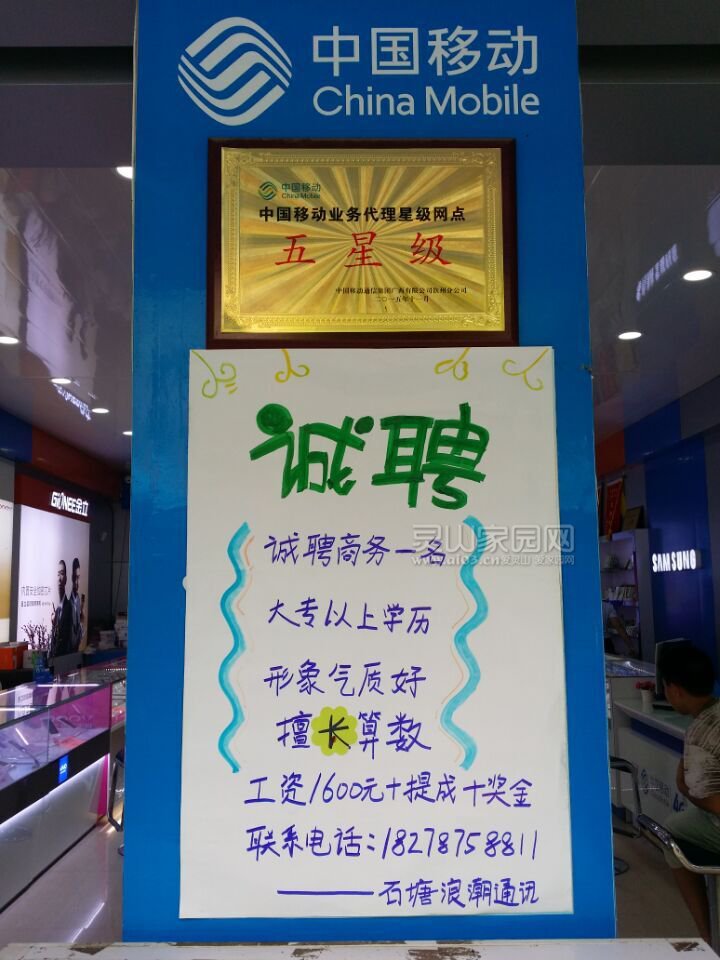 中国移动
China Mobile
中国移动
China Mobile
中国移动业务代理星级网点
五星级
中国移动通信集团广西有限公司钦州分公司
二〇一五年十一月
诚聘
诚聘商务一名
大专以上学历
形象气质好
擅长算数
工资1600元+提成+奖金
联系电话:18278758811
——石塘浪潮通讯
灵山家园网
GIONEE金立
SAMSUNG
中国移动
4G